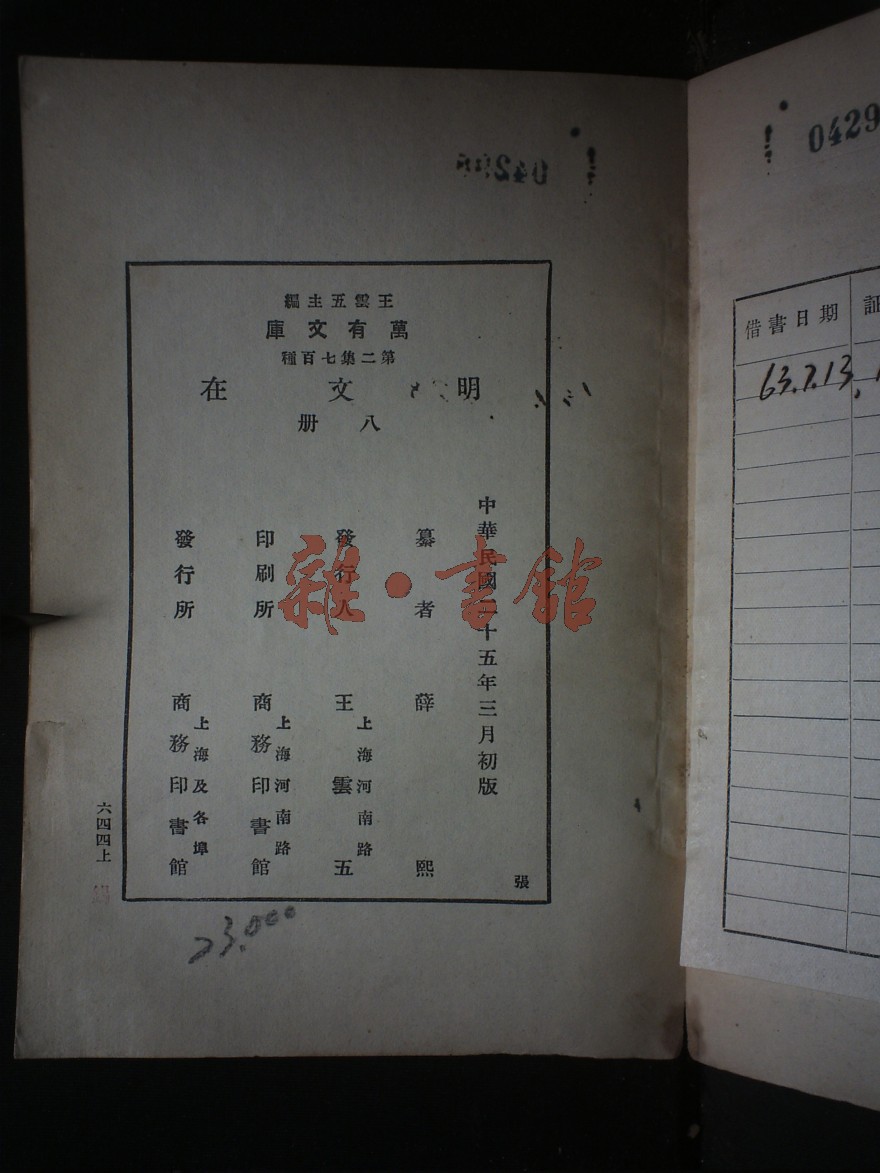 王雲五主編
萬有文庫
第二集七百種
明文在
八册
中華民國二十五年三月初版
纂者 薛熙
發行人 王雲五
上海河南路
印刷所 商務印書館
上海河南路
發行所 商務印書館
上海及各埠
張
六四四上
23.000
雜·書館
0429
借書日期
証
63.7.13